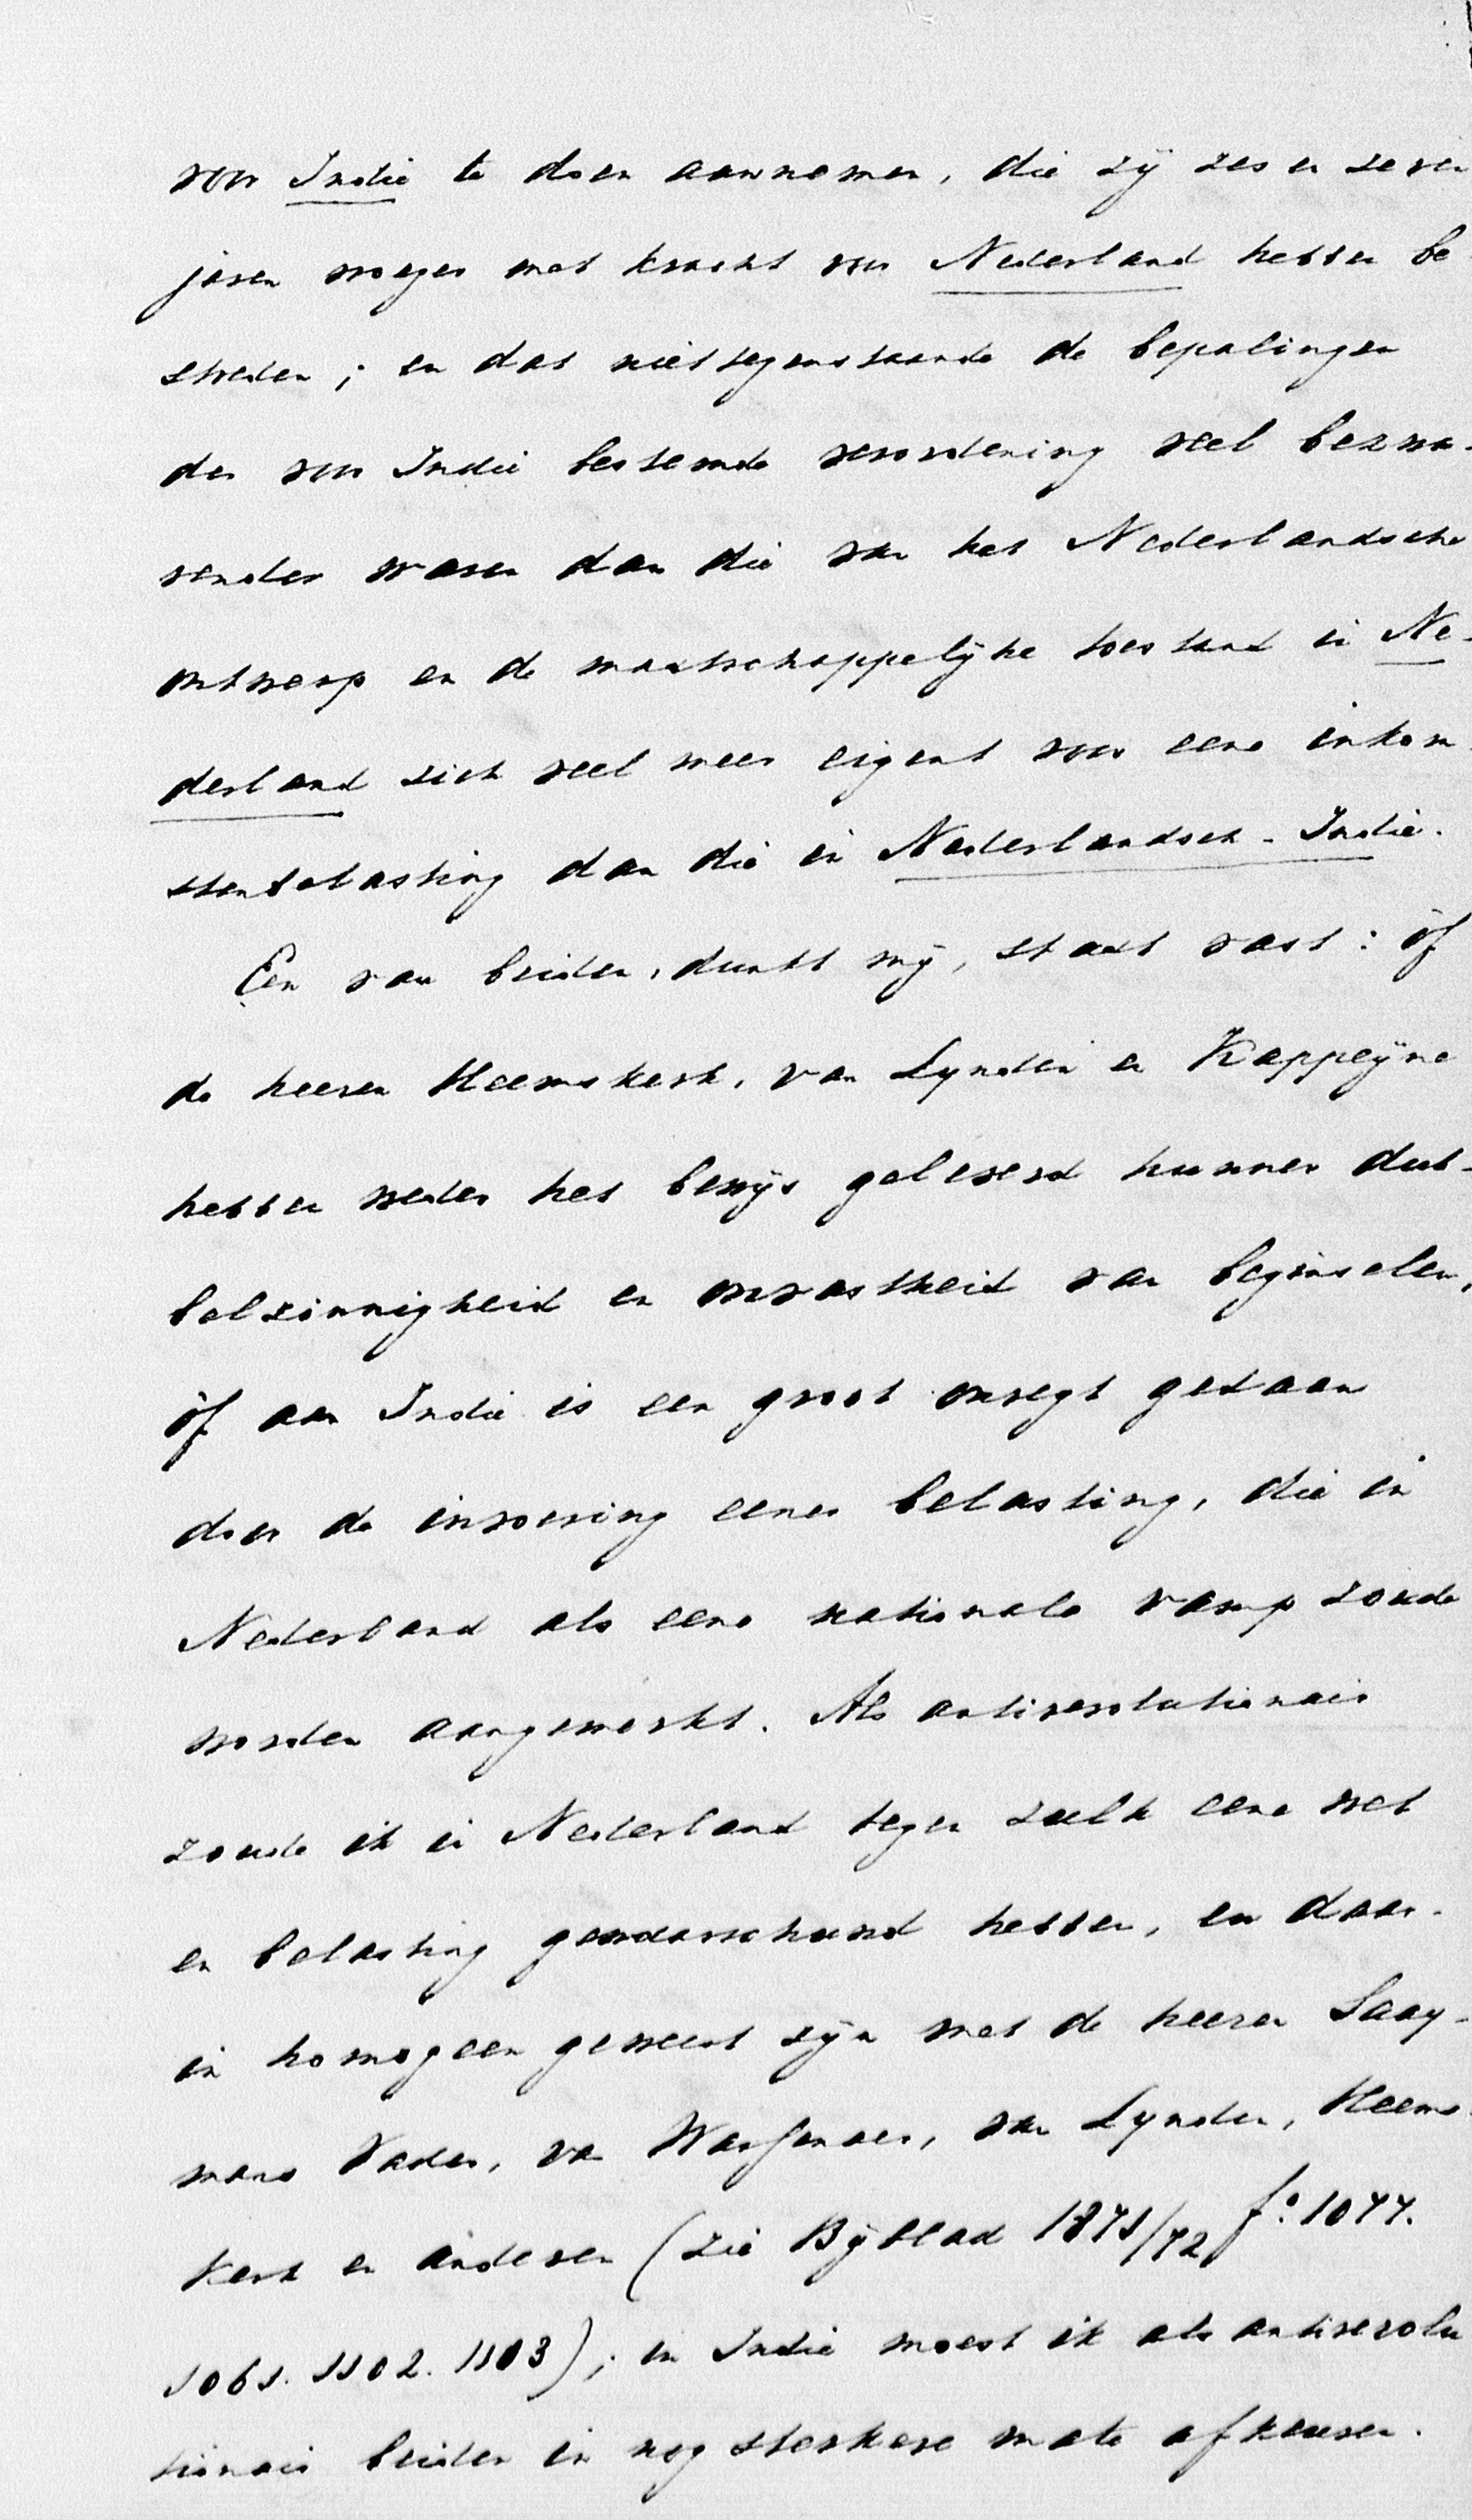 voor Indië te doen aannemen, die zij zes en zeven
jaren vroeger met kracht voor Nederland hebben be-
streden; en dat niettegenstaande de bepalingen
der voor Indië bestemde verordening veel bezwa-
render waren dan die van het Nederlandsche
ontwerp en de maatschappelijke toestand in Ne-
derland zich veel meer eigent voor eene inkom-
stenbelasting dan die in Nederlandsch-Indië.
Een van beiden, dunkt mij, staat vast: òf
de heeren Heemskerk, van Lynden en Kappeijne
hebben weder het bewijs geleverd hunner dub-
belzinnigheid en onvastheid van beginselen,
òf aan Indië is een groot onregt gedaan
door de invoering eener belasting, die in
Nederland als eene nationale ramp zoude
worden aangemerkt. Als antirevolutionair
zoude ik in Nederland tegen zulk eene wet
en belasting gewaarschuwd hebben, en daar-
in homogeen geweest zijn met de heeren Saay-
mans Vader, van Wassenaer, van Lynden, Heems-
kerk en anderen (zie Bijblad 1871/72 fo. 1077.
1061. 1102. 1103); in Indië moest ik als antirevolu
tionair beiden in nog sterkere mate afkeuren.